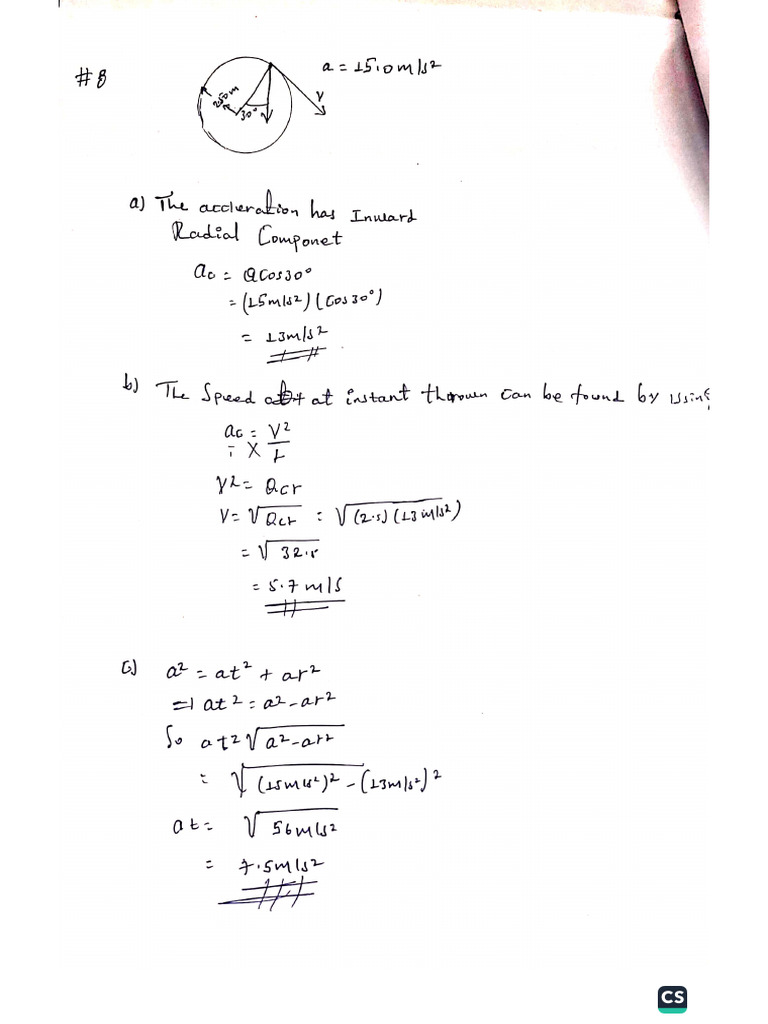 #8
a = 15.0 m/s²
2.50 m
30°
v
a) The accleration has Inward
Radial Componet
ac = a cos 30°
= (15 m/s²) (Cos 30°)
= 13 m/s²
b) The Speed at at instant thrown can be found by using
ac = V²
r
V² = acr
V = √acr = √(2.5) (13 m/s²)
= √32.5
= 5.7 m/s
c) a² = at² + ar²
=> at² = a² - ar²
So at = √a² - ar²
= √(15 m/s²)² - (13 m/s²)²
at = √56 m/s²
= 7.5 m/s²
CS